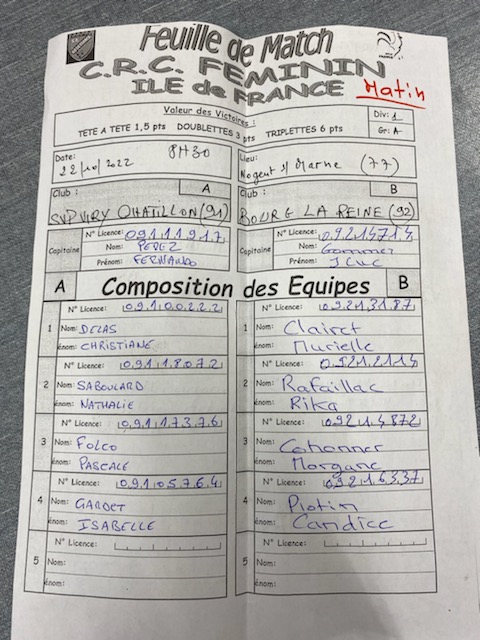 Feuille de Match
C.R.C. FEMININ
ILE de FRANCE Matin
Valeur des Victoires :
TETE A TETE 1,5 pts DOUBLETTES 3 pts TRIPLETTES 6 pts
Div: 1
Gr: A
Date: 22/10/2022 8H30
Lieu: Nogent s/ Marne (77)
Club : A
SVP VIRY CHATILLON (91)
Club : B
BOURG LA REINE (92)
Capitaine
N° Licence: 09111917
Nom: PEREZ
Prénom: FERNANDO
Capitaine
N° Licence: 09214714
Nom:
Prénom: J Luc
A Composition des Equipes B
N° Licence: 09100222
1 Nom: DELAS
énom: CHRISTIANE
N° Licence: 09213187
1 Nom: Clairet
énom: Murielle
N° Licence: 09118072
2 Nom: SABOULARD
énom: NATHALIE
N° Licence:
2 Nom: Rafaillac
énom: Rika
N° Licence: 09117376
3 Nom: FOLCO
énom: PASCALE
N° Licence: 09214872
3 Nom: Cohonner
énom: Morgane
N° Licence: 09105764
4 Nom: GARDET
énom: ISABELLE
N° Licence: 09216337
4 Nom: Piotin
énom: Candice
N° Licence:
5 Nom:
énom:
N° Licence:
5 Nom:
énom: